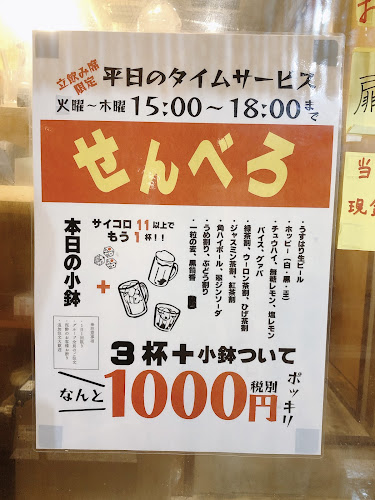 立飲み席
限定
平日のタイムサービス
火曜～木曜 15:00～18:00まで
せんべろ
サイコロ 11以上で
もう1杯！！
本日の小鉢
+
・うすはり生ビール
・ホッピー(白・黒・生)
・チュウハイ、無糖レモン、塩レモン
バイス、グァバ
・緑茶割、ウーロン茶割、ひげ茶割
・ジャスミン茶割、紅茶割
・角ハイボール、翠ジンソーダ
・うめ割り、ぶどう割り
・一粒の麦、黒筒香
3杯+小鉢ついて
なんと
1000円
税別
ポッキリ!!
扉
当
現金